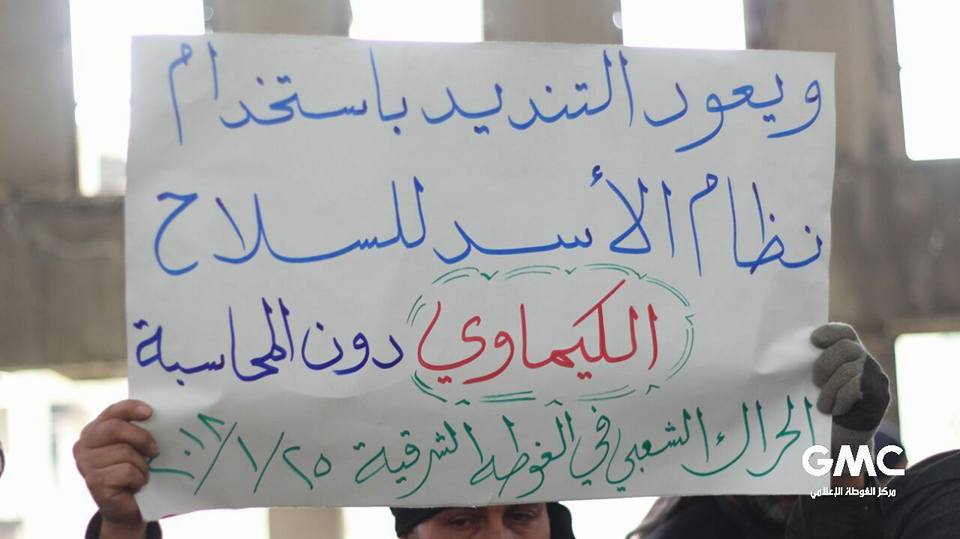 ويعود التنديد باستخدام
نظام الأسد للسلاح
الكيماوي دون المحاسبة
الحراك الشعبي في الغوطة الشرقية ٢٠١٨/١/٢٥
GMC
مركز الغوطة الإعلامي